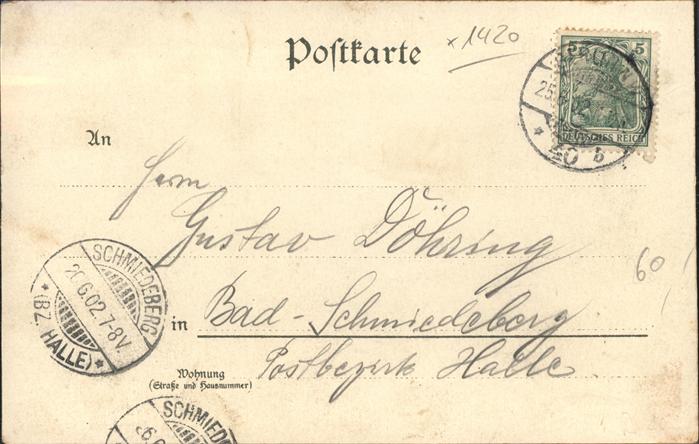 Postkarte
x 1420
5 5
DEUTSCHES REICH
25.
* 40 b
An
Herrn
Gustav Döhring
in Bad-Schmiedeberg
Postbezirk Halle
Wohnung
(Straße und Hausnummer)
60
SCHMIEDEBERG
26.6.02.7-8V.
*(BZ. HALLE)*
SCHMIEDEB
26.6